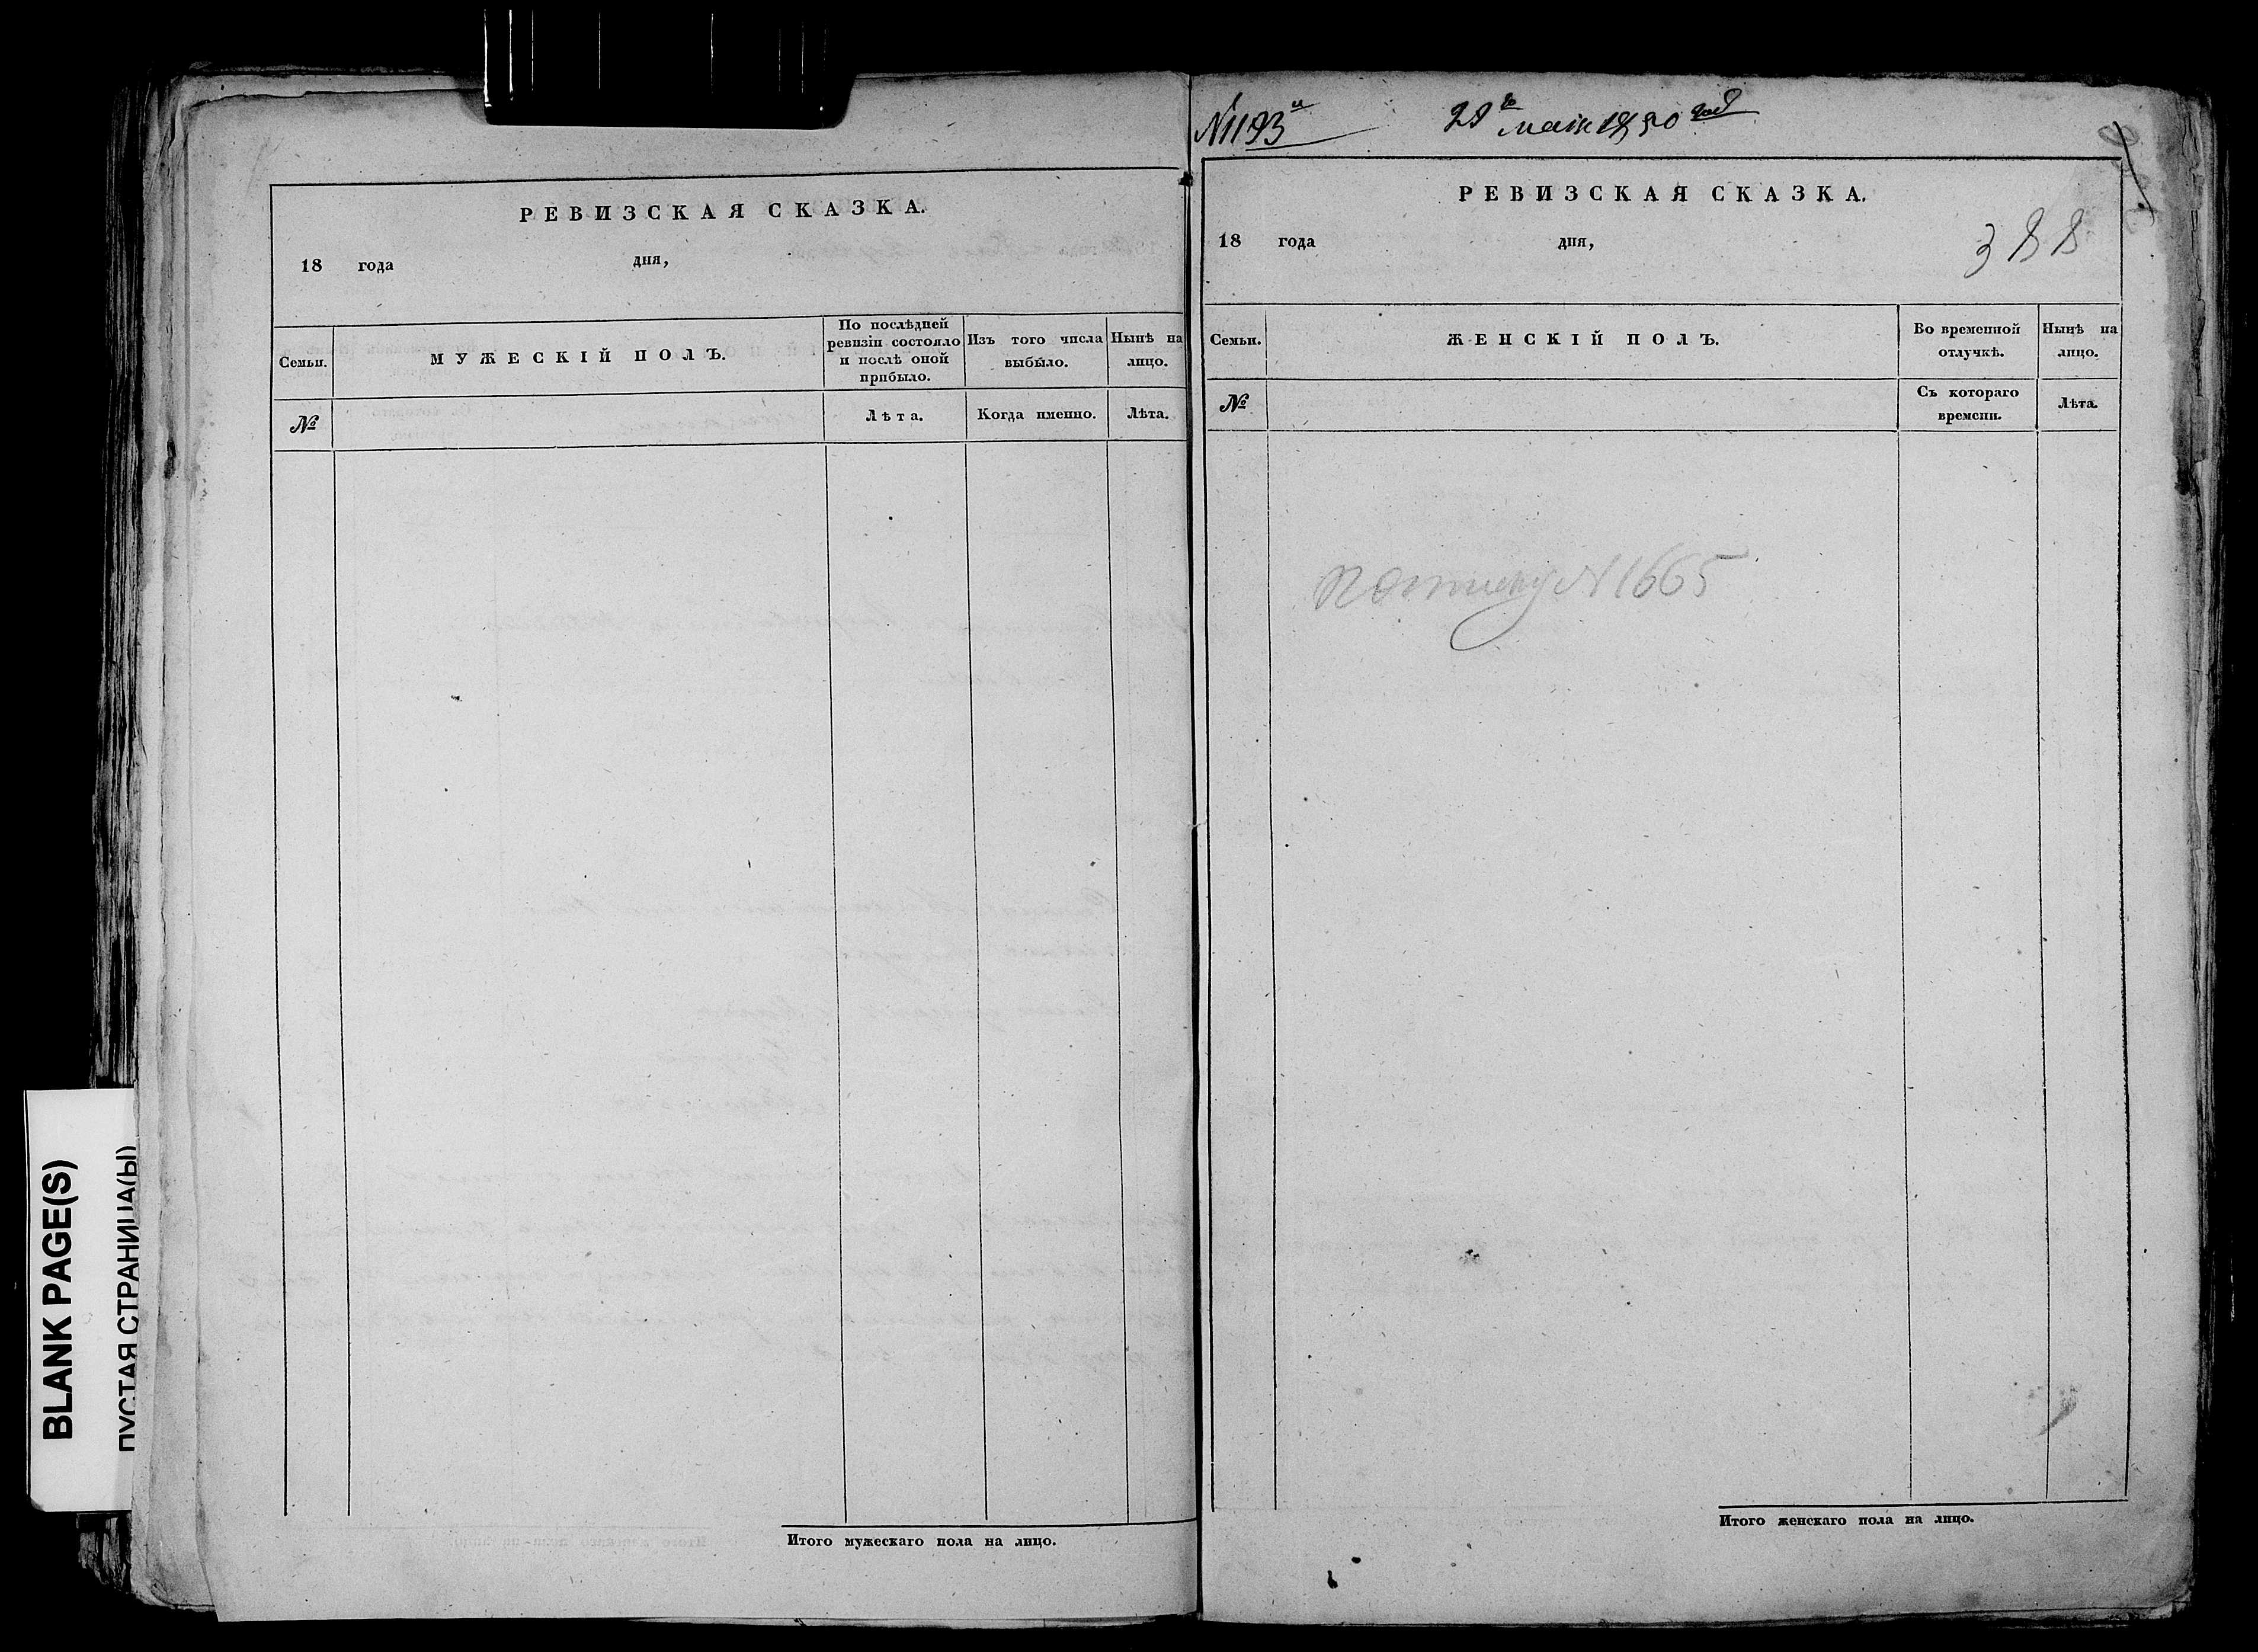 РЕВИЗСКАЯ СКАЗКА.
18 года дня,
Семьи. МУЖЕСКІЙ ПОЛЪ. По послѣдней ревизіи состояло и послѣ оной прибыло. Изъ того числа выбыло. Нынѣ на лицо.
№ Лѣта. Когда именно. Лѣта.
Итого мужескаго пола на лицо.
N 1193й 28го маія 1850 года
РЕВИЗСКАЯ СКАЗКА.
18 года дня,
388
Семьи. ЖЕНСКІЙ ПОЛЪ. Во временной отлучкѣ. Нынѣ на лицо.
№ Съ котораго времени. Лѣта.
N 1665
Итого женскаго пола на лицо.
BLANK PAGE(S)
ПУСТАЯ СТРАНИЦА(Ы)